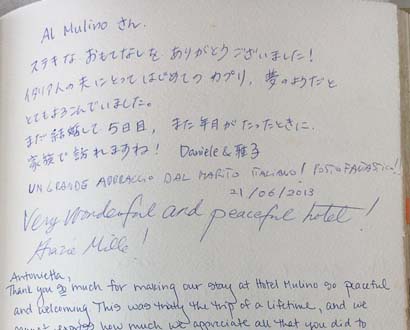 Al Mulino さん.
ステキな おもてなしを ありがとうございました!
イタリア人の夫にとって はじめての カプリ, 夢のようだと
とてもよろこんでいました。
まだ結婚して 5日目, また 年月が たったときに.
家族で 訪れますね! Daniele & 雅子
UN GRANDE ABBRACCIO DAL MARITO ITALIANO! POSTO FANTASTICO!
21/06/2013
Very wonderful and peaceful hotel!
Grazie Mille!
Antonietta,
Thank you so much for making our stay at Hotel Mulino so peaceful
and welcoming This was truly the trip of a lifetime, and we
cannot express how much we appreciate all that you did to